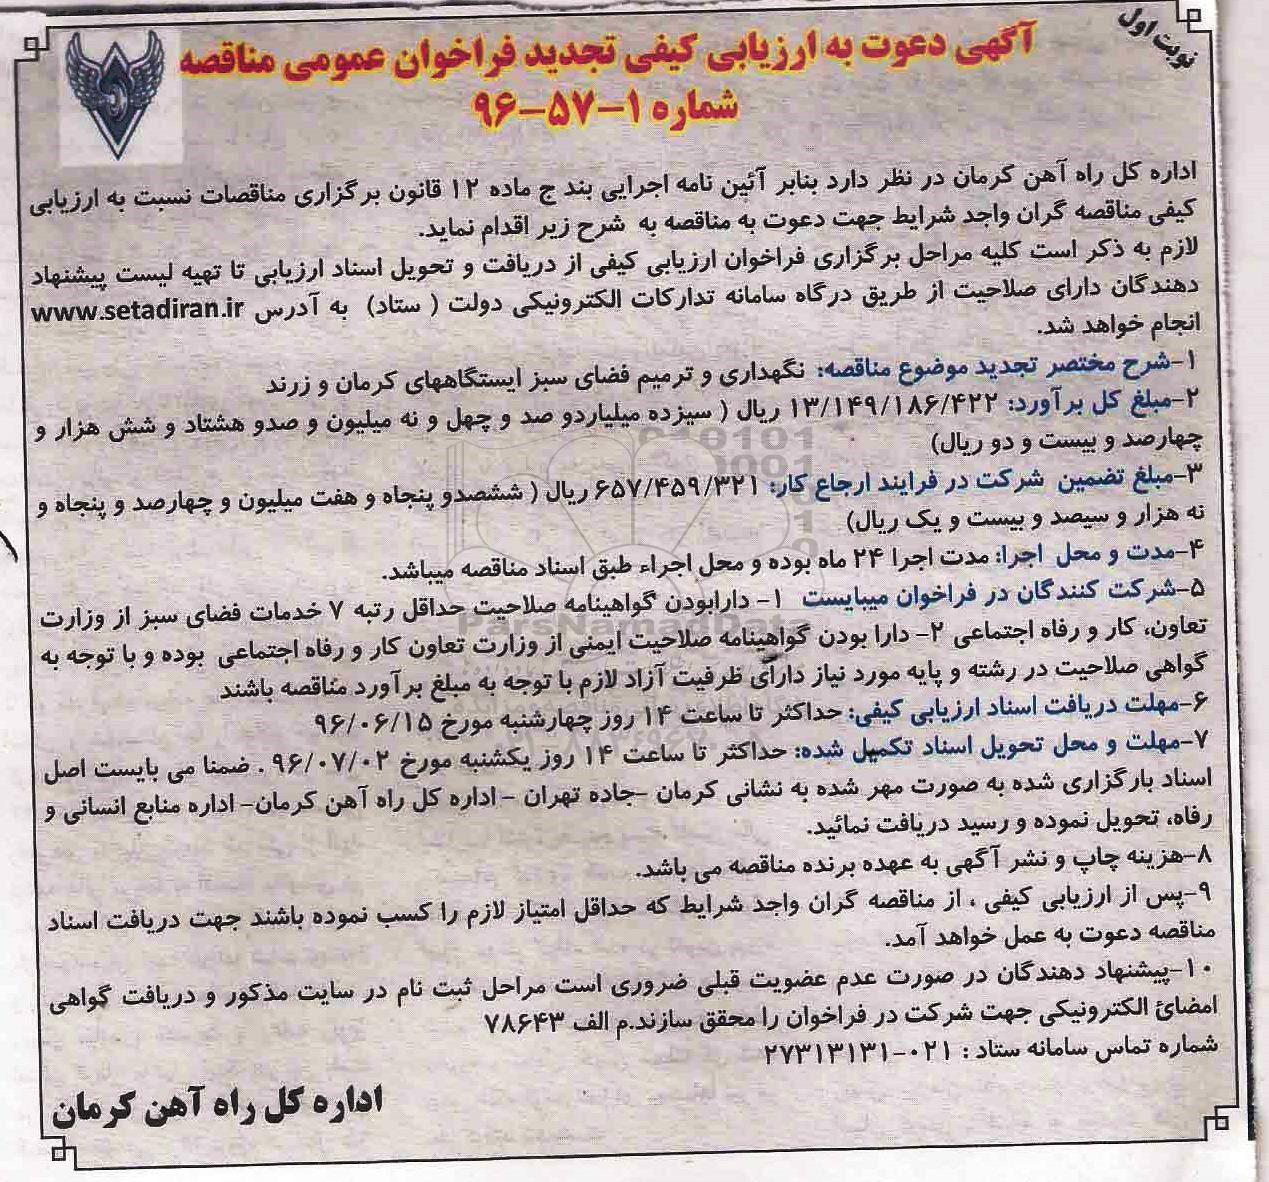 نوبت اول
آگهی دعوت به ارزیابی کیفی تجدید فراخوان عمومی مناقصه
شماره ۱-۵۷-۹۶
اداره کل راه آهن کرمان در نظر دارد بنابر آئین نامه اجرایی بند ج ماده ۱۲ قانون برگزاری مناقصات نسبت به ارزیابی
کیفی مناقصه گران واجد شرایط جهت دعوت به مناقصه به شرح زیر اقدام نماید.
لازم به ذکر است کلیه مراحل برگزاری فراخوان ارزیابی کیفی از دریافت و تحویل اسناد ارزیابی تا تهیه لیست پیشنهاد
دهندگان دارای صلاحیت از طریق درگاه سامانه تدارکات الکترونیکی دولت ( ستاد) به آدرس www.setadiran.ir
انجام خواهد شد.
۱-شرح مختصر تجدید موضوع مناقصه: نگهداری و ترمیم فضای سبز ایستگاههای کرمان و زرند
۲-مبلغ کل برآورد: ۱۳/۱۴۹/۱۸۶/۴۲۲ ریال ( سیزده میلیاردو صد و چهل و نه میلیون و صدو هشتاد و شش هزار و
چهارصد و بیست و دو ریال)
۳-مبلغ تضمین شرکت در فرایند ارجاع کار: ۶۵۷/۴۵۹/۳۲۱ ریال ( ششصدو پنجاه و هفت میلیون و چهارصد و پنجاه و
نه هزار و سیصد و بیست و یک ریال)
۴-مدت و محل اجرا: مدت اجرا ۲۴ ماه بوده و محل اجراء طبق اسناد مناقصه میباشد.
۵-شرکت کنندگان در فراخوان میبایست ۱- دارابودن گواهینامه صلاحیت حداقل رتبه ۷ خدمات فضای سبز از وزارت
تعاون، کار و رفاه اجتماعی ۲- دارا بودن گواهینامه صلاحیت ایمنی از وزارت تعاون کار و رفاه اجتماعی بوده و با توجه به
گواهی صلاحیت در رشته و پایه مورد نیاز دارای ظرفیت آزاد لازم با توجه به مبلغ برآورد مناقصه باشند
۶-مهلت دریافت اسناد ارزیابی کیفی: حداکثر تا ساعت ۱۴ روز چهارشنبه مورخ ۹۶/۰۶/۱۵
۷-مهلت و محل تحویل اسناد تکمیل شده: حداکثر تا ساعت ۱۴ روز یکشنبه مورخ ۹۶/۰۷/۰۲ . ضمنا می بایست اصل
اسناد بارگزاری شده به صورت مهر شده به نشانی کرمان -جاده تهران - اداره کل راه آهن کرمان- اداره منابع انسانی و
رفاه، تحویل نموده و رسید دریافت نمائید.
۸-هزینه چاپ و نشر آگهی به عهده برنده مناقصه می باشد.
۹-پس از ارزیابی کیفی ، از مناقصه گران واجد شرایط که حداقل امتیاز لازم را کسب نموده باشند جهت دریافت اسناد
مناقصه دعوت به عمل خواهد آمد.
۱۰-پیشنهاد دهندگان در صورت عدم عضویت قبلی ضروری است مراحل ثبت نام در سایت مذکور و دریافت گواهی
امضائ الکترونیکی جهت شرکت در فراخوان را محقق سازند.م الف ۷۸۶۴۳
شماره تماس سامانه ستاد : ۰۲۱-۲۷۳۱۳۱۳۱
اداره کل راه آهن کرمان
ParsNamadData